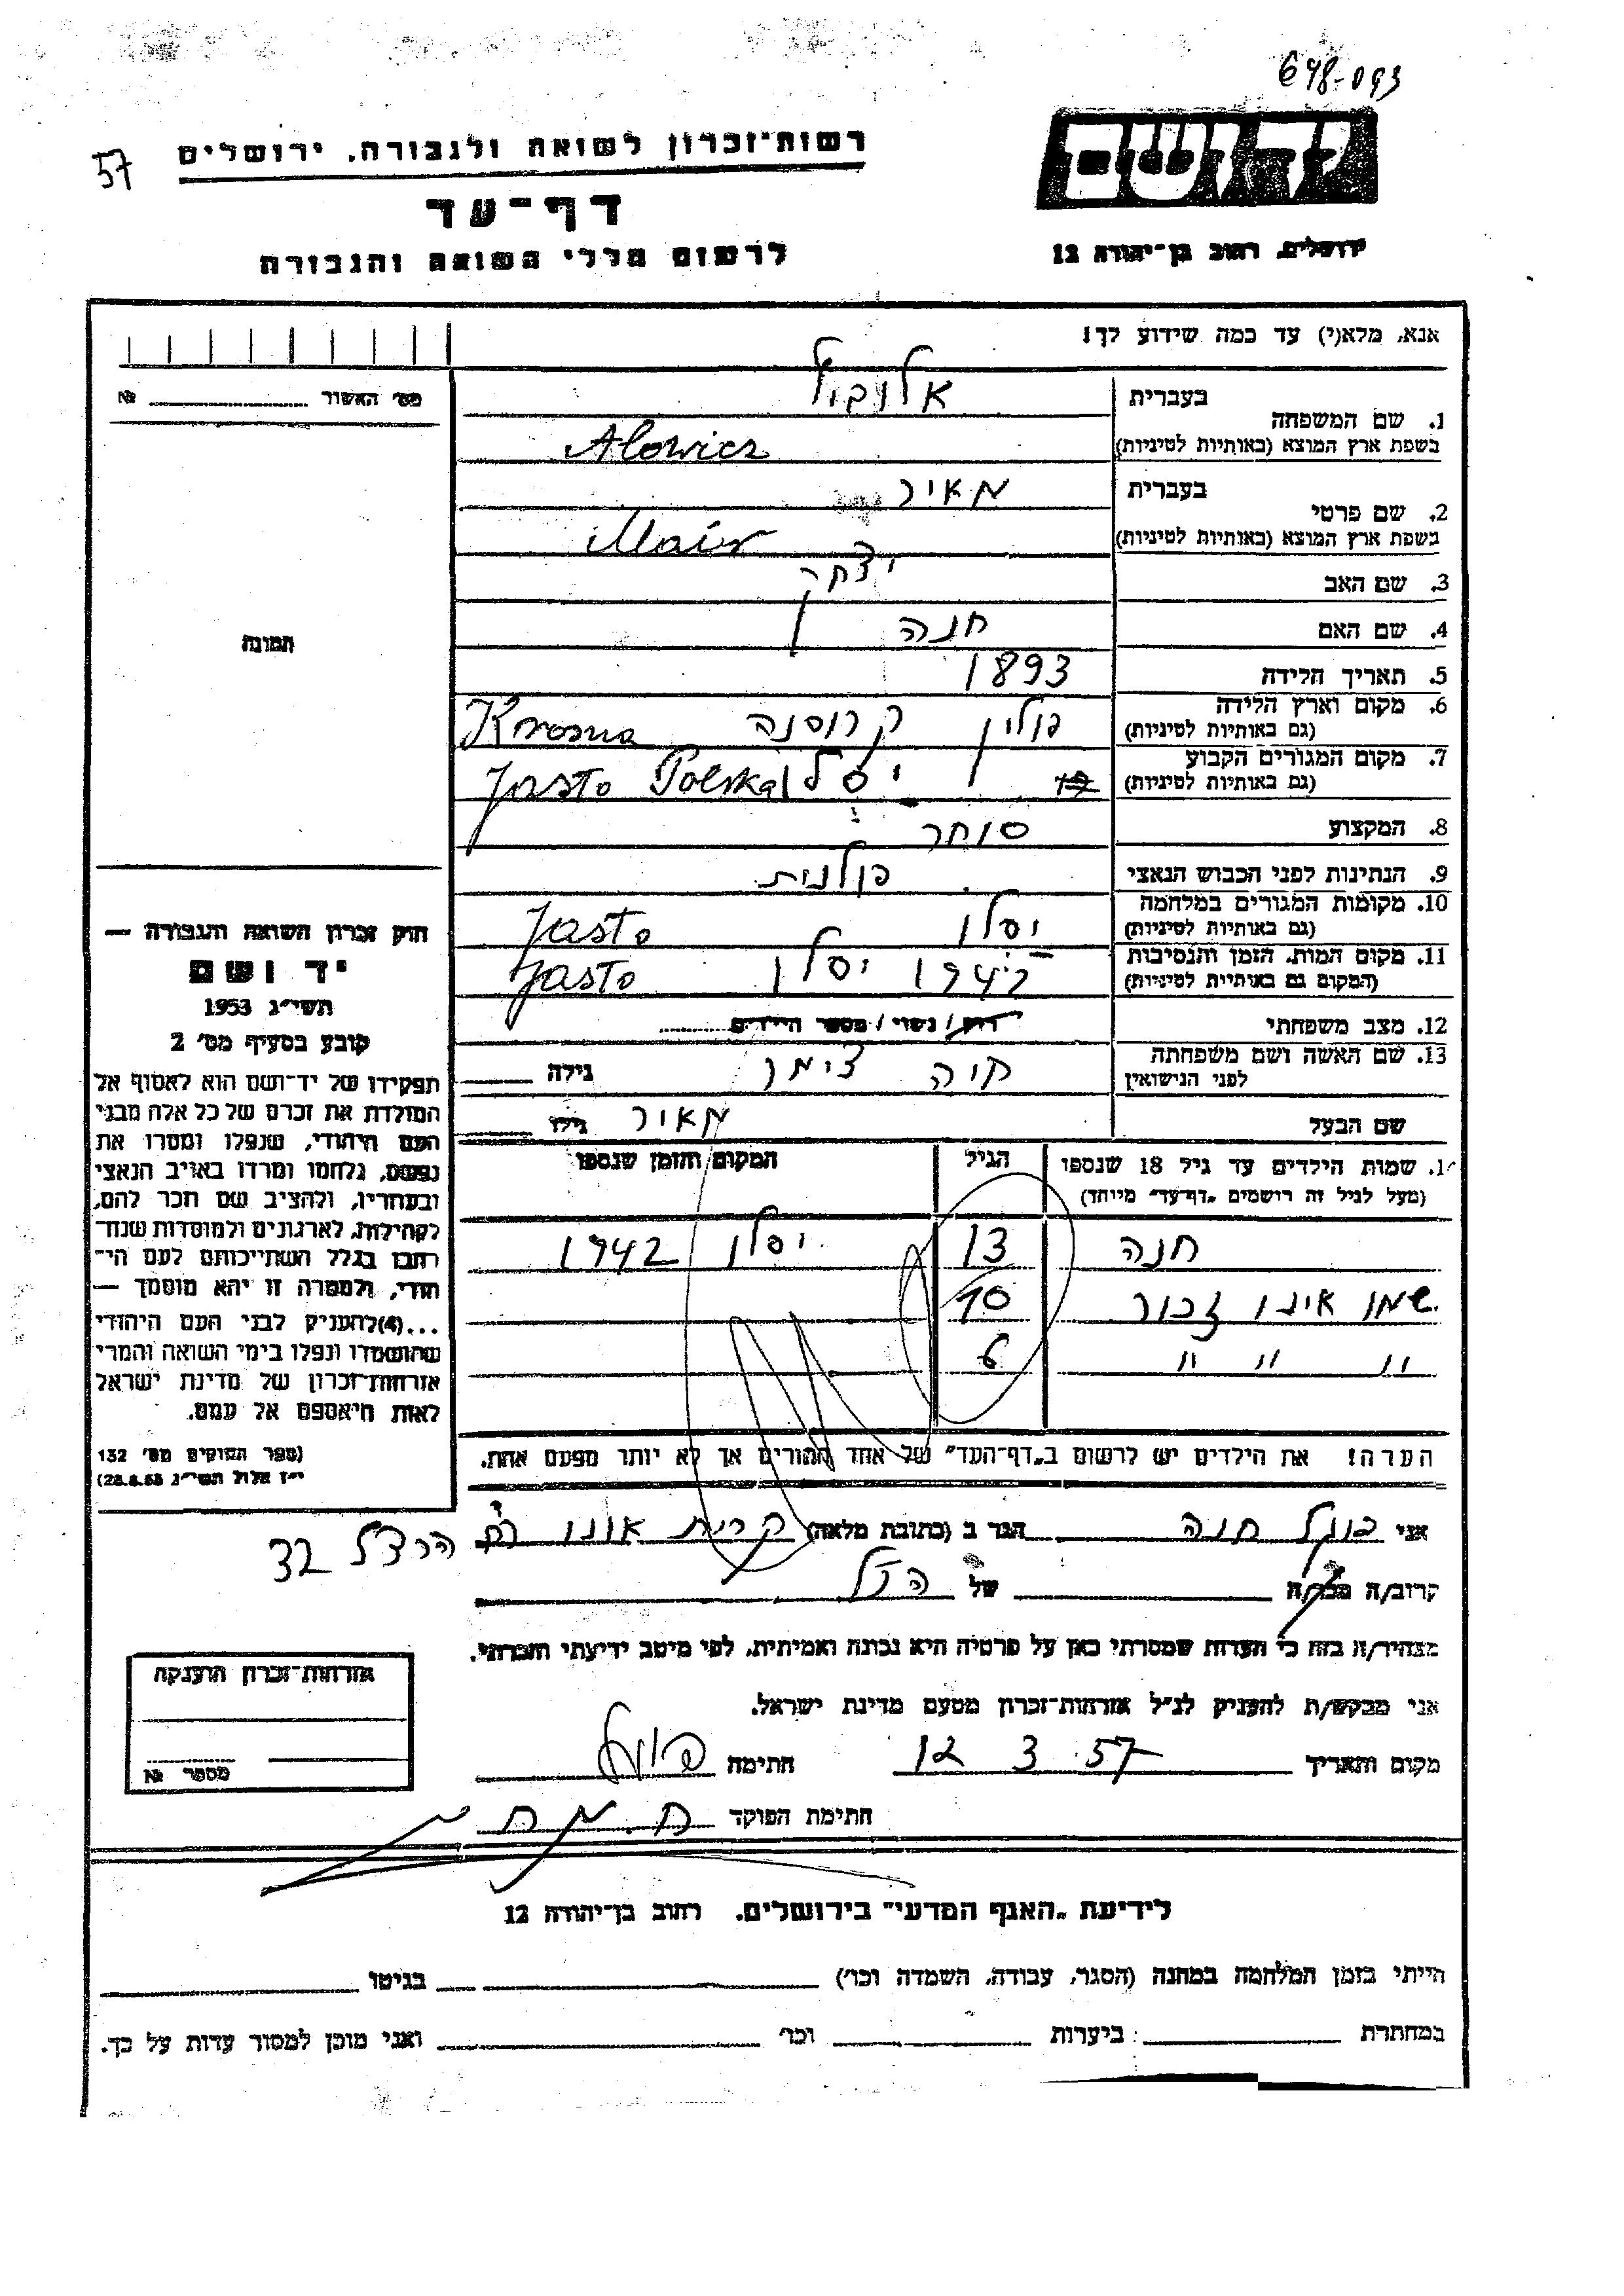 698-093
57
רשות־זכרון לשואה ולגבורה, ירושלים
יד ושם
דף־עד
לרשום חללי השואה והגבורה
ירושלים, רחוב בן־יהודה 12
אנא, מלא(י) עד כמה שידוע לך!
מס׳ האשור № 
בעברית
1. שם המשפחה
בשפת ארץ המוצא (באותיות לטיניות) Alowicz
בעברית מאיר
2. שם פרטי
בשפת ארץ המוצא (באותיות לטיניות) Mair
3. שם האב יצחק
4. שם האם חנה
5. תאריך הלידה 1893
6. מקום וארץ הלידה פולין קרוסנה Krosna
(גם באותיות לטיניות)
7. מקום המגורים הקבוע יסלו Jasto Polska
(גם באותיות לטיניות)
8. המקצוע סוחר
9. הנתינות לפני הכבוש הנאצי פולנית
10. מקומות המגורים במלחמה יסלו Jasto
(גם באותיות לטיניות)
11. מקום המות, הזמן והנסיבות 1942 יסלו Jasto
(המקום גם באותיות לטיניות)
12. מצב משפחתי רוק / נשוי / מספר הילדים
13. שם האשה ושם משפחתה לפני הנישואין גילה
שם הבעל מאיר גילו
שמות הילדים עד גיל 18 שנספו הגיל המקום והזמן שנספו
(מעל לגיל זה רושמים „דף־עד” מיוחד)
חנה 13 יסלו 1942
שמו אינו זכור 10
" " " 6
הערה! את הילדים יש לרשום ב„דף־העד” של אחד ההורים אך לא יותר מפעם אחת.
תמונה
חוק זכרון השואה והגבורה —
יד ושם
תשי״ג 1953
קובע בסעיף מס׳ 2
תפקידו של יד־ושם הוא לאסוף אל
המולדת את זכרם של כל אלה מבני
העם היהודי, שנפלו ומסרו את
נפשם, נלחמו ומרדו באויב הנאצי
ובעוזריו, ולהציב שם וזכר להם,
לקהילות, לארגונים ולמוסדות שנח־
רבו בגלל השתייכותם לעם הי־
הודי, ולמטרה זו יהא מוסמך —
...(4)להעניק לבני העם היהודי
שהושמדו ונפלו בימי השואה והמרי
אזרחות־זכרון של מדינת ישראל
לאות היאספם אל עמם.
(ספר החוקים מס׳ 132
י״ז אלול תשי״ג 28.8.53)
אני חנה הגר ב (כתובת מלאה) קרית אונו רח הרצל 32
קרוב/ה מכר/ה של הנ״ל
מצהיר/ה בזה כי העדות שמסרתי כאן על פרטיה היא נכונה ואמיתית, לפי מיטב ידיעתי והכרתי.
אני מבקש/ת להעניק לנ״ל אזרחות־זכרון מטעם מדינת ישראל.
מקום ותאריך 12 3 57 חתימה
חתימת הפוקד
אזרחות־זכרון הוענקה
מספר №
לידיעת „האגף המדעי” בירושלים. רחוב בן־יהודה 12
הייתי בזמן המלחמה במחנה (הסגר, עבודה, השמדה וכו׳) בגיטו
במחתרת ביערות וכו׳ ואני מוכן למסור עדות על כך.